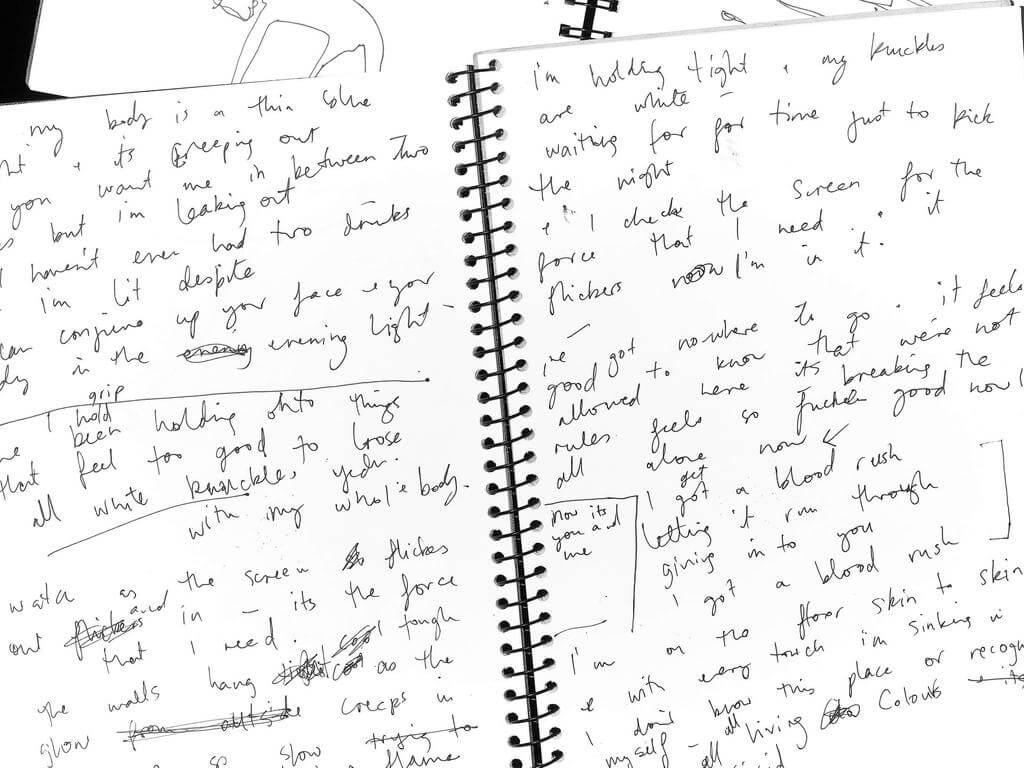 my body is a thin blue
& its creeping out
you want me in between two
but i'm leaking out
I haven't even had two drinks
i'm lit despite
conjure up your face & your
in the evening light -
grip
I hold
been holding onto things
that feel too good to loose
all white knuckles, yeah.
with my whole body.
watch as the screen flickes
out flickers and in - its the force
that I need.
the walls hang tough
glow from outside creeps in
as the
so slow trying to
flame
i'm holding tight & my knuckles
are white -
waiting for for time just to kick
the night
& I check the screen for the
force that I need & it
flickers now I'm in it.
we -
good got nowhere to go. it feels
allowed to know that we're not
here its breaking the
rules. feels so fucken good now
all alone now
get
I got a blood rush
letting it run through
giving in to you
I got a blood rush
now its
you and
me
I'm on the floor skin to skin
& with every touch i'm sinking in
I don't know this place or
myself - all living Colours
all